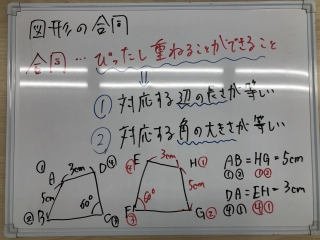 図形の合同
合同…ぴったし重ねることができること
① 対応する辺の長さが等しい
② 対応する角の大きさが等しい
① A 3cm D ④
5cm
② B 60° C ③
④ E 3cm H ①
5cm
③ F 60° G ②
AB = HG = 5cm
① ② ① ②
DA = EH = 3cm
④ ① ④ ①